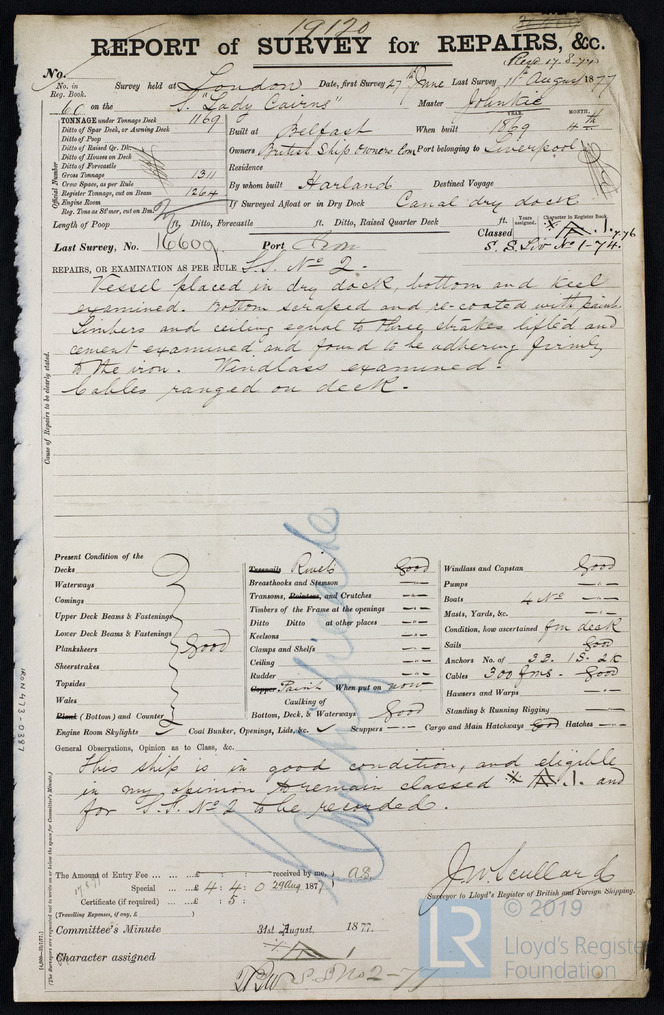 19120
REPORT of SURVEY for REPAIRS, &c.
Recd 17-8-77
No.
No. in Reg. Book. Survey held at London Date, first Survey 27th June Last Survey 11th August 1877
60 on the S. "Lady Cairns" Master
TONNAGE under Tonnage Deck 1169
Ditto of Spar Deck, or Awning Deck
Ditto of Poop
Ditto of Raised Qr. Dk.
Ditto of Houses on Deck
Ditto of Forecastle
Gross Tonnage 1311
Crew Space, as per Rule
Register Tonnage, cut on Beam 1264
Engine Room
Reg. Tons as Stmer, cut on Bm.
Official Number
YEAR. MONTH.
Built at Belfast When built 1869 4th
Owners British Ship Owners Com Port belonging to Liverpool
Residence
By whom built Harland Destined Voyage
If Surveyed Afloat or in Dry Dock Canal dry dock
Length of Poop ft. Ditto, Forecastle ft. Ditto, Raised Quarter Deck ft.
Years assigned. Character in Register Book.
Classed A.1. 7.76
S.S. Liv No 1-74.
Last Survey, No. 16609 Port Iron
REPAIRS, OR EXAMINATION AS PER RULE S.S. No 2.
Vessel placed in dry dock, bottom and keel
examined. Bottom scraped and re-coated with paint.
Limbers and ceiling equal to three strakes lifted and
cement examined and found to be adhering firmly
to the iron. Windlass examined.
Cables ranged on deck.
Cause of Repairs to be clearly stated.
Present Condition of the
Decks
Waterways
Comings
Upper Deck Beams & Fastenings
Lower Deck Beams & Fastenings
Planksheers Good
Sheerstrakes
Topsides
Wales
Plank (Bottom) and Counter
Engine Room Skylights Coal Bunker, Openings, Lids, &c. Scuppers Cargo and Main Hatchways Good Hatches
Treenails Rivets Good
Breasthooks and Stemson
Transoms, Pointers, and Crutches
Timbers of the Frame at the openings
Ditto Ditto at other places
Keelsons
Clamps and Shelfs
Ceiling
Rudder
Copper Paint When put on now
Caulking of
Bottom, Deck, & Waterways Good
Windlass and Capstan Good
Pumps
Boats 4 No
Masts, Yards, &c.
Condition, how ascertained fm deck
Sails Good
Anchors No. of 3B. 1S. 2K
Cables 300 fms. Good
Hawsers and Warps
Standing & Running Rigging
General Observations, Opinion as to Class, &c.
This ship is in good condition, and eligible
in my opinion to remain classed A.1. and
for S.S. No 2 to be recorded.
The Amount of Entry Fee £ received by me,
Special £ 4 : 4 : 0 29 Aug. 1877
Certificate (if required) £ : 5 :
(Travelling Expenses, if any, £ )
17.8.77
Surveyor to Lloyd's Register of British and Foreign Shipping.
Committee's Minute 31st August. 1877.
Character assigned A 1
S.S. No 2-77
(The Surveyors are requested not to write on or below the space for Committee's Minute.)
IRON 473-0387
© 2019
LR
Lloyd's Register
Foundation